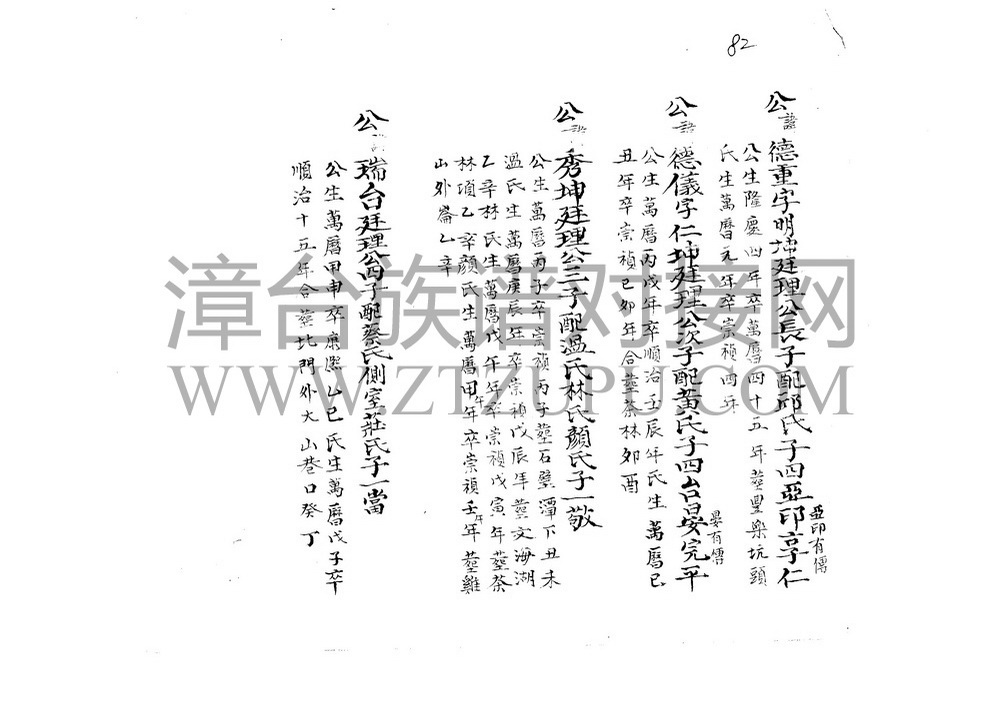 82
公諱德重字明坤廷理公長子配邱氏子四亞印享仁
亞印有傳
公生隆慶四年卒萬曆四十五年塟豐樂坑頭
氏生萬曆元年卒崇禎四年
公諱德儀字仁坤廷理公次子配黃氏子四台晏完平
晏有傳
公生萬曆丙戌年卒順治壬辰年氏生萬曆己
丑年卒崇禎己卯年合塟茶林夘酉
公諱秀坤廷理公三子配溫氏林氏顏氏子一敬
公生萬曆丙子卒崇禎丙子塟石壁潭下丑未
溫氏生萬曆庚辰年卒崇禎戊辰年塟文海湖
乙辛林氏生萬曆戊午年卒崇禎戊寅年塟茶
林項乙辛顏氏生萬曆甲午年卒崇禎壬午年塟雞
山外崙乙辛
公諱瑞台廷理公四子配蔡氏側室莊氏子一當
公生萬曆甲申卒康熙乙巳氏生萬曆戊子卒
順治十五年合塟北門外大山巷口癸丁
漳台族谱对接网
WWW.ZTZUPU.COM